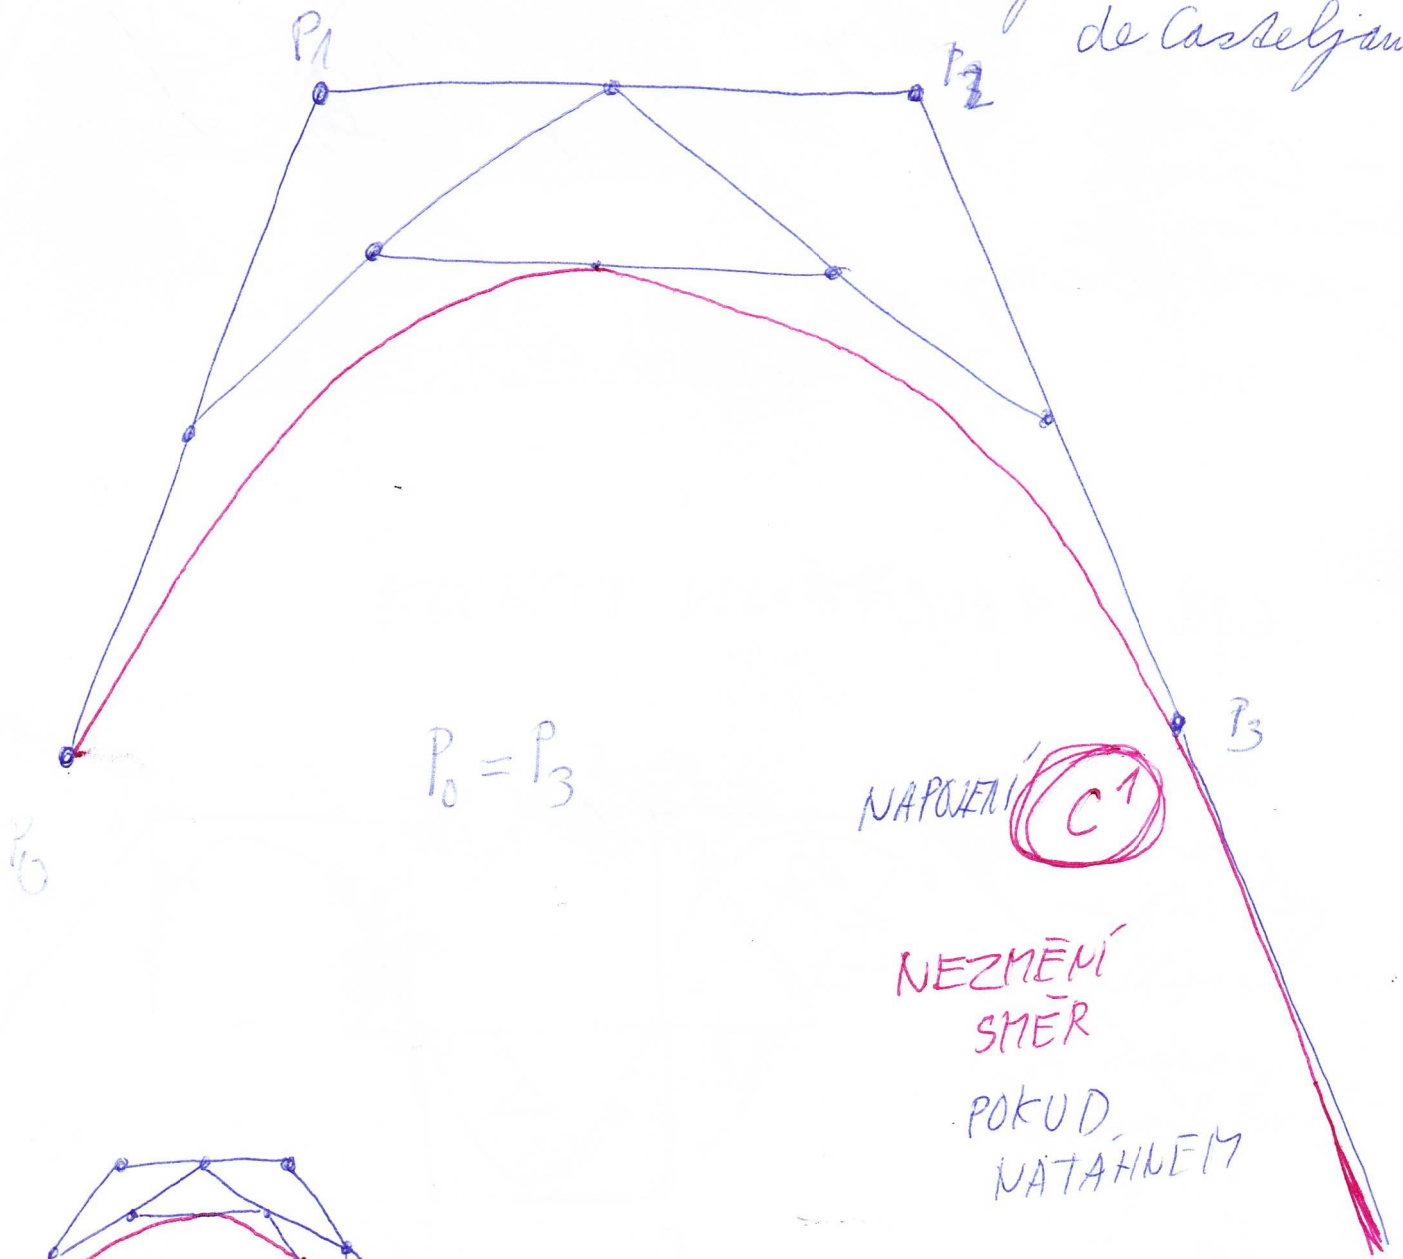 de Casteljau
P1
P2
P0 = P3
P3
NAPOJENÍ C¹
P0
NEZMĚNÍ
SMĚR
POKUD
NATÁHNEM